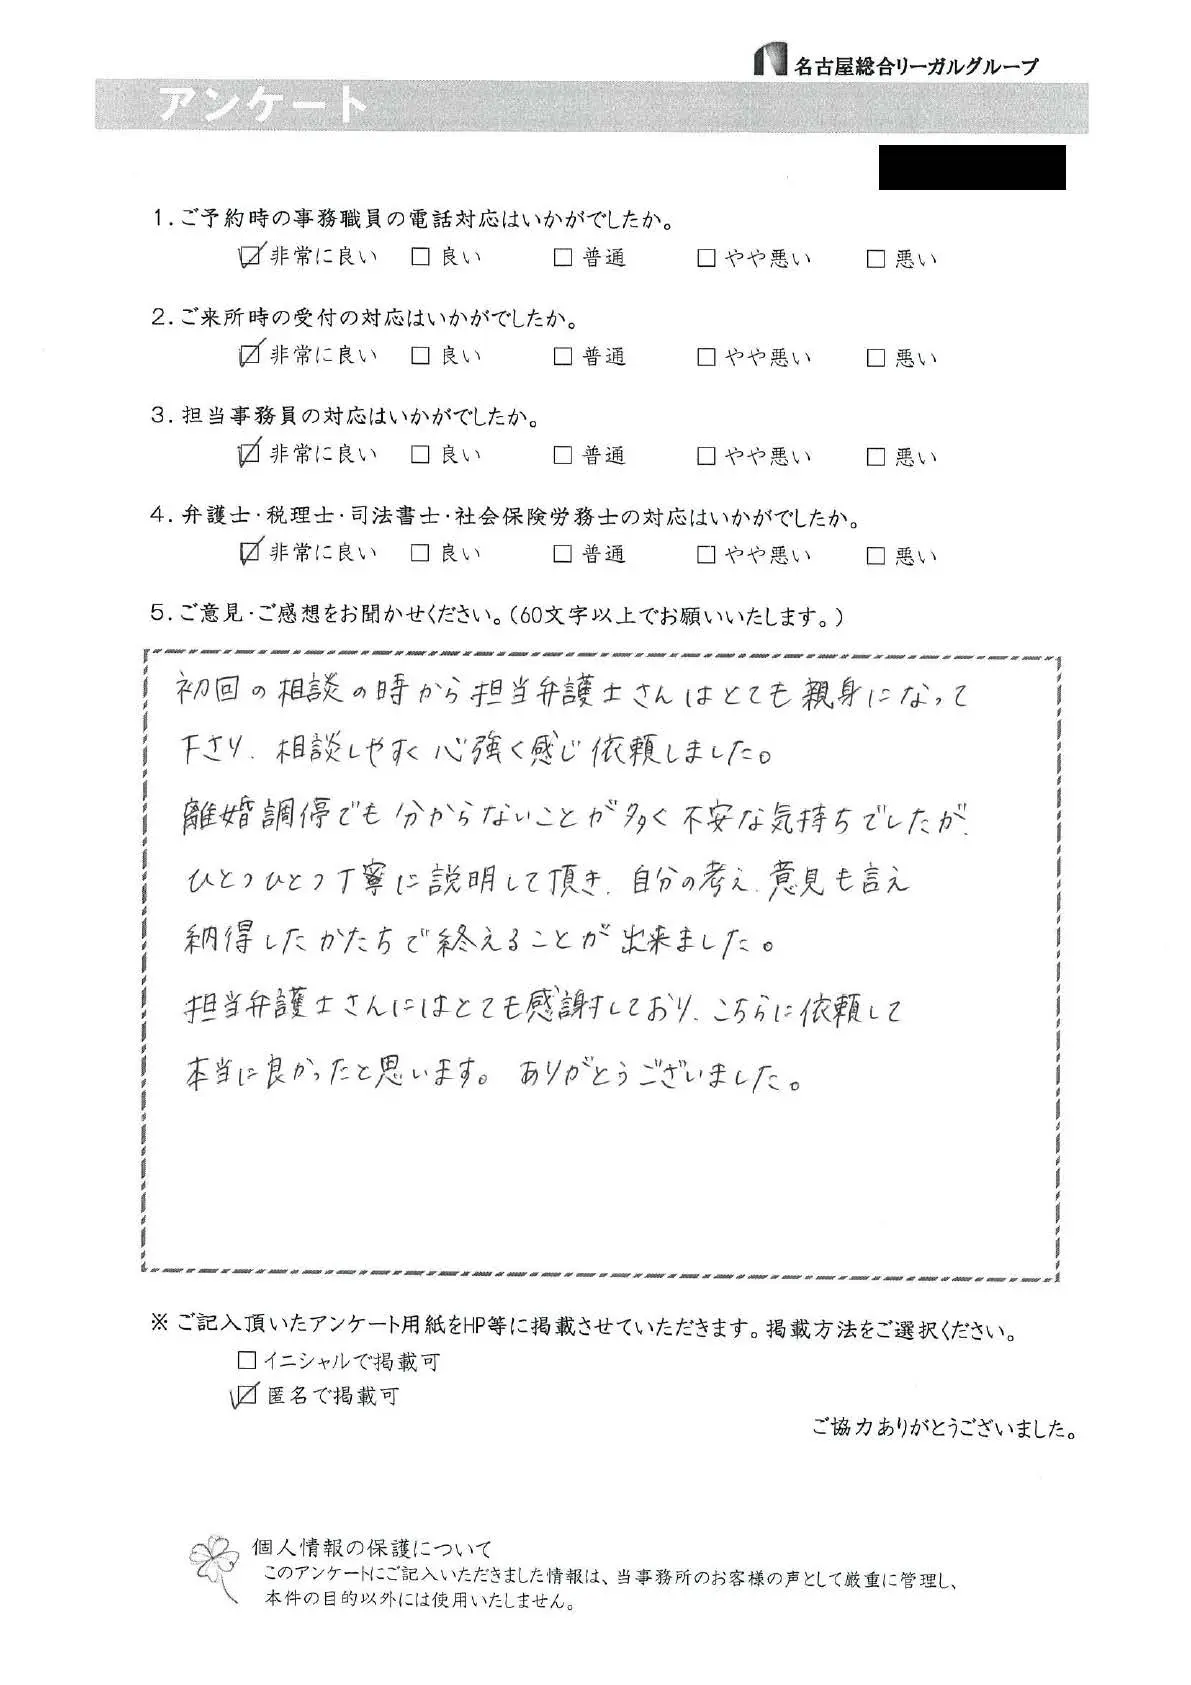 名古屋総合リーガルグループ
アンケート
1.ご予約時の事務職員の電話対応はいかがでしたか。
☑非常に良い □良い □普通 □やや悪い □悪い
2.ご来所時の受付の対応はいかがでしたか。
☑非常に良い □良い □普通 □やや悪い □悪い
3.担当事務員の対応はいかがでしたか。
☑非常に良い □良い □普通 □やや悪い □悪い
4.弁護士・税理士・司法書士・社会保険労務士の対応はいかがでしたか。
☑非常に良い □良い □普通 □やや悪い □悪い
5.ご意見・ご感想をお聞かせください。(60文字以上でお願いいたします。)
初回の相談の時から担当弁護士さんはとても親身になって
下さり、相談しやすく心強く感じ依頼しました。
離婚調停でも分からないことが多く不安な気持ちでしたが、
ひとつひとつ丁寧に説明して頂き、自分の考え、意見も言え
納得したかたちで終えることが出来ました。
担当弁護士さんにはとても感謝しており、こちらに依頼して
本当に良かったと思います。ありがとうございました。
※ご記入頂いたアンケート用紙をHP等に掲載させていただきます。掲載方法をご選択ください。
□イニシャルで掲載可
☑匿名で掲載可
ご協力ありがとうございました。
個人情報の保護について
このアンケートにご記入いただきました情報は、当事務所のお客様の声として厳重に管理し、
本件の目的以外には使用いたしません。